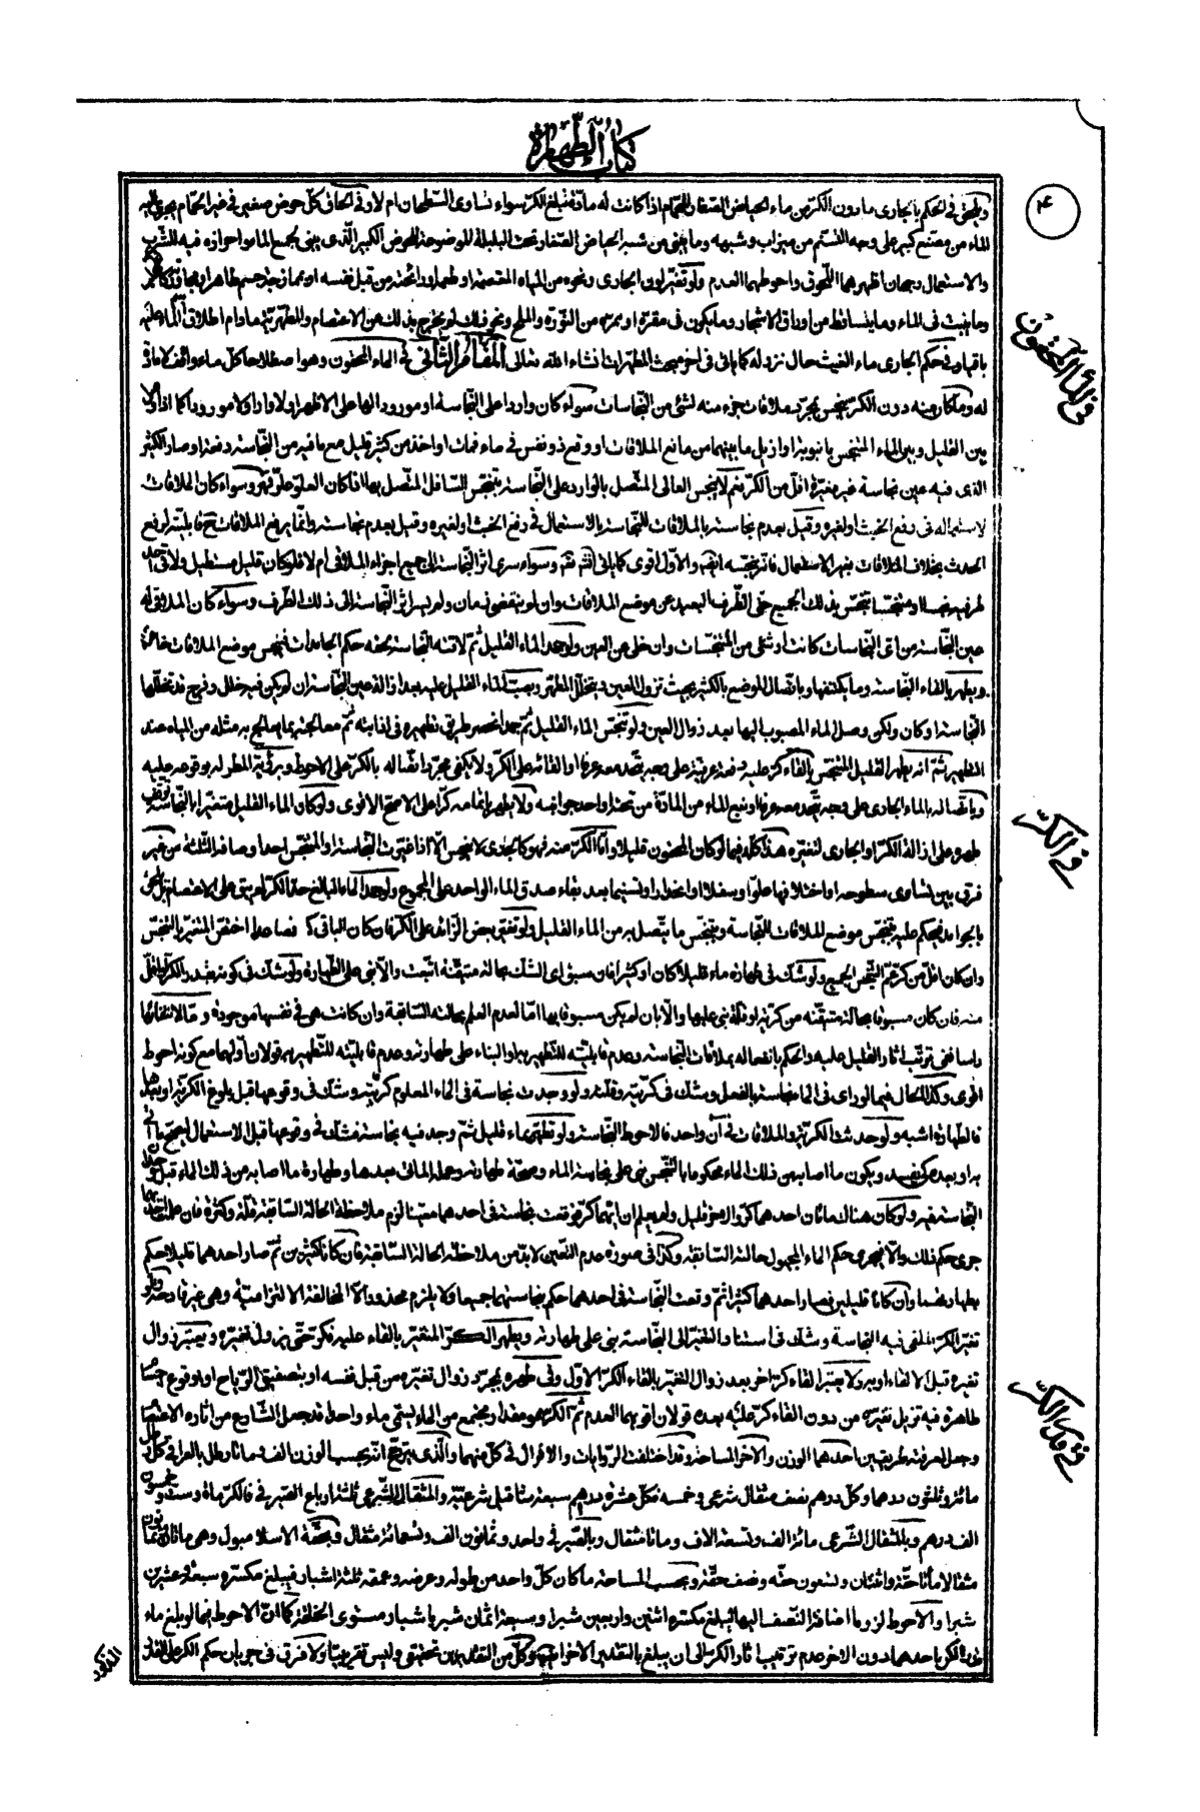 كتاب الطهارة
٤
ويلحق في الحكم بالجاري مادون الكر من ماء الحياض الصغار للحمام اذا كانت له مادة تبلغ الكر سواء تساوى السطحان ام لا وفي الحاق كل حوض صغير في غير الحمام يجري اليه
الماء من مصنع كبير على وجه التسنم من ميزاب وشبهه وما يبنى من شبه الحياض الصغار تحت البلبلة للوضوء من الحوض الكبير الذي يبنى لجمع الماء واحرازه فيه للشرب
والاستعمال وجهان اظهرهما اللحوق واحوطهما العدم ولو تغير لون الجاري ونحوه من المياه المعتصمة او طعمه او رائحته من قبل نفسه او بممازجة جسم طاهر او بمجاورته
وما ينبت في الماء وما يتساقط من اوراق الاشجار وما يكون في مقره او ممره من النورة والملح ونحو ذلك لم يخرج بذلك عن الاعتصام والمطهرية مادام اطلاق الماء عليه
باقيا وفي حكم الجاري ماء الغيث حال نزوله كما ياتي في اخر مبحث المطهرات انشاء الله تعالى المقام الثاني في الماء المحقون وهو اصطلاحا كل ماء واقف لا مادة
له وما كان منه دون الكر ينجس بمجرد ملاقات جزء منه لشئ من النجاسات سواء كان واردا على النجاسة او مورودا لها على الاظهر اولا واردا ولا مورودا كما اذا
بين القليل وبين الماء المتنجس بانبوبة او ازيل ما بينهما من مانع الملاقات او وقع ذو نفس في ماء فمات او اخذ من كثير قليل مع ما فيه من النجاسة دفعة او صار الكثير
الذي فيه عين نجاسة غير مغيرة اقل من الكر نعم لا ينجس العالي المتصل بالوارد على النجاسة بتنجس السافل المتصل بها اذا كان العلو علو قهر وسواء كان الملاقات
لاستعماله في رفع الخبث او لغيره وقيل بعدم نجاسته بالملاقات للنجاسة بالاستعمال في رفع الخبث او لغيره وقيل بعدم نجاسته وانما يرفع الملاقات ح قابليته لرفع
الحدث بخلاف الملاقات بغير الاستعمال فانه ينجسه ايضا والاول اقوى كما ياتي انشاء الله تعالى وسواء سرى اثر النجاسة الى جميع اجزاء الملاقي ام لا فلو كان قليل مستطيل ولاقى احد
طرفيه نجسا او متنجسا تنجس بذلك الجميع حتى الطرف البعيد عن موضع الملاقات وان لم ينقض زمان ولم يسر اثر النجاسة الى ذلك الطرف وسواء كان الملاقي له
عين النجاسة من اي النجاسات كانت او شئ من المتنجسات وان خلى عن العين ولو جمد الماء القليل ثم لاقته النجاسة لحقه حكم الجامدات فينجس موضع الملاقات خاصة
ويطهر بالقاء النجاسة وما يكتنفها وباتصال الموضع بالكثير بحيث تزول العين ويتخلل المطهر وبصب الماء القليل عليه بعد ازالة عين النجاسة ان لم يكن فيه خلل وفرج قد تخللها
النجاسة او كان ولكن وصل الماء المصبوب اليها بعد زوال العين ولو تنجس الماء القليل ثم جمد انحصر طريق تطهيره في اذابته ثم معالجته بما يعالج به مثله من المياه عند
التطهير ثم انه يطهر القليل المتنجس بالقاء كر عليه دفعة عرفية على وجه يتحد معه عرفا او القائه على الكر ولا يكفي مجرد اتصاله بالكر على الاحوط وبرؤية المطر له بوقوعه عليه
وباتصاله بالماء الجاري على وجه يتحد معه عرفا وبنبع الماء من المادة من تحته او احد جوانبه ولا يطهر باتمامه كرا على الاصح الاقوى ولو كان الماء القليل متغيرا بالنجاسة
طهره على ازالة الكر او الجاري لتغيره هذا كله فيما لو كان المحقون قليلا واما الكر منه فهو كالجاري لا ينجس الا اذا غيرت النجاسة او المتنجس احد اوصافه الثلثة من غير
فرق بين تساوي سطوحه او اختلافها علوا وسفلا او انحدارا وتسنيما بعد بقاء صدق الماء الواحد على المجموع ولو جمد الماء البالغ حد الكر لم يبق على الاعتصام بل يلحق
بالجوامد فيحكم عليه بتنجس موضع الملاقات للنجاسة ويتنجس ما يتصل به من الماء القليل ولو تغير بعض الزائد على الكر فان كان الباقي كرا فصاعدا اختص المتغير بالتنجس
وان كان اقل من كر عم التنجس الجميع ولو شك في طهارة ماء قليلا كان او كثيرا فان سبق اي الشك بحالة متيقنة اتبعت والا بنى على الطهارة ولو شك في كونه بقدر الكر او اقل
منه فان كان مسبوقا بحالة متيقنة من كرية او قلة بنى عليها والا بان لم يكن مسبوقا بها اما لعدم العلم بحالته السابقة وان كانت هي في نفسها موجودة واما لانتفائها
راسا ففي ترتب اثار القليل عليه والحكم بانفعاله بملاقات النجاسة وعدم قابليته للتطهير به او البناء على طهارته وعدم قابليته للتطهير به قولان اولهما مع كونه احوط
اقوى وكذا الحال فيما لو راى في الماء نجاسة بالفعل وشك في كريته وقلته ولو وجدت نجاسة في الماء المعلوم كريته وشك في وقوعها قبل بلوغ الكرية او بعدها
فالطهارة اشبه ولو حدثت الكرية والملاقات في آن واحد فالاحوط النجاسة ولو تطهر بماء قليل ثم وجد فيه نجاسة فشك في وقوعها قبل الاستعمال
به او بعده
النجاسة فيه ولو كان هناك ماءان احدهما كر والاخر قليل ولم يعلم ان ايهما كر فوقعت نجاسة في احدهما معينا لزم ملاحظة الحالة السابقة قلة وكثرة فان علمت
جرى حكم ذلك والا فيجري حكم الماء المجهول حالته السابقة وكذا في صورة عدم التعيين لا بد من ملاحظة الحالة السابقة فان كانا كثيرين ثم صار احدهما قليلا حكم
بطهارتهما وان كانا قليلين فصار احدهما كثيرا ثم وقعت النجاسة في احدهما حكم بنجاستهما جميعا ولا يلزم محذور الا المخالفة الالتزامية وهي غير قادحة ولو
تغير الكر الملقى فيه النجاسة وشك في استناد التغير الى النجاسة بنى على طهارته ويطهر الكر المتغير بالقاء عليه فكر حتى يزول تغيره ويعتبر زوال
تغيره قبل الالقاء او به ولا يعتبر القاء كر اخر بعد زوال التغير بالقاء الكر الاول وفي طهره بمجرد زوال تغيره من قبل نفسه او بتصفيق الرياح او بوقوع اجسام
طاهرة فيه تزيل تغيره من دون القاء كر عليه بعده قولان اقويهما العدم ثم الكر هو مقدار مجتمع من الماء يسمى ماء واحدا قد جعل الشارع من اثاره الاعتصام
وجعل لمعرفته طريقين احدهما الوزن والاخر المساحة وقد اختلفت الروايات والاقوال في كل منهما والذي يترجح انه بحسب الوزن الف ومائتا رطل بالعراقي كل رطل
مائة وثلثون درهما وكل درهم نصف مثقال شرعي وخمسه فكل عشرة دراهم سبعة مثاقيل شرعية والمثقال الشرعي ثلثة ارباع الصيرفي فالكر مائة وستة وخمسون
الف درهم وبالمثقال الشرعي مائة الف وتسعة الاف ومائتا مثقال وبالصيرفي واحد وثمانون الف وتسعمائة مثقال وبحقة الاسلامبول وهي مائتان وثمانون
مثقالا مائتا حقة واثنتان وتسعون حقة ونصف حقة وبحسب المساحة ما كان كل واحد من طوله وعرضه وعمقه ثلثة اشبار فيبلغ مكسره سبعة وعشرين
شبرا والاحوط لزوما اضافة النصف اليها فيبلغ مكسره اثنين واربعين شبرا وسبعة اثمان شبر باشبار مستوى الخلقة كما ان الاحوط فيما لو بلغ ماء
في الكر باحدهما دون الاخر عدم ترتيب اثار الكر الى ان يبلغ بالتقدير الاخر ايضا وكل من التقديرين تحقيقي وليس تقريبيا ولا فرق في جريان حكم الكر على الماء
في الماء المحقون
في الكر
في قدر الكر
المذكور